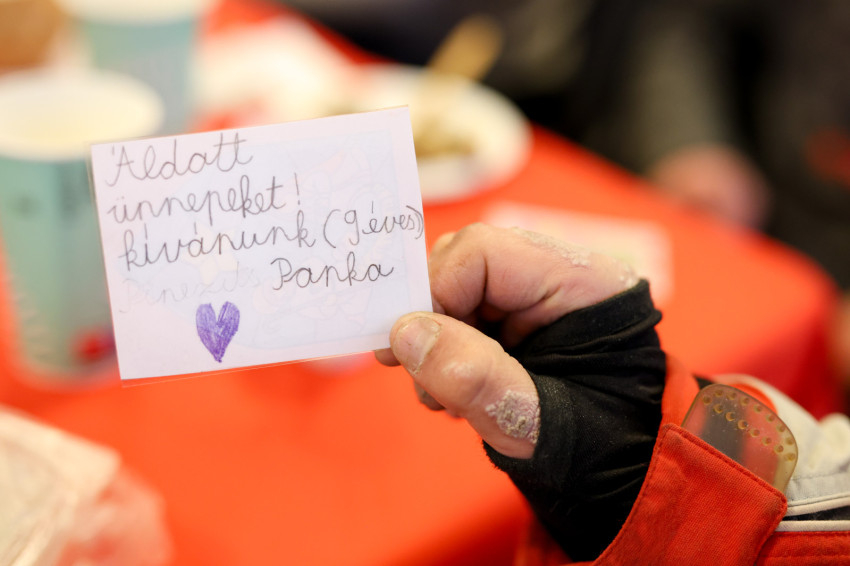 Áldott
ünnepeket!
kívánunk (9 éves)
Panka